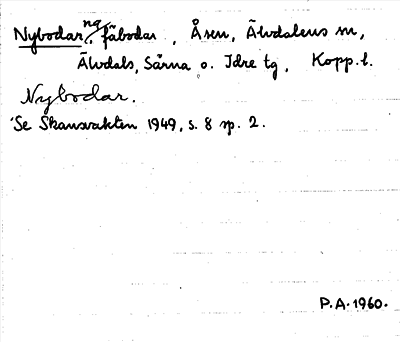 Nybodar, ng fäbodar, Åsen, Älvdalens sn,
Älvdals, Särna o. Idre tg, Kopp. l.
Nybodar.
Se Skansvakten 1949, s. 8 sp. 2.
P.A. 1960.